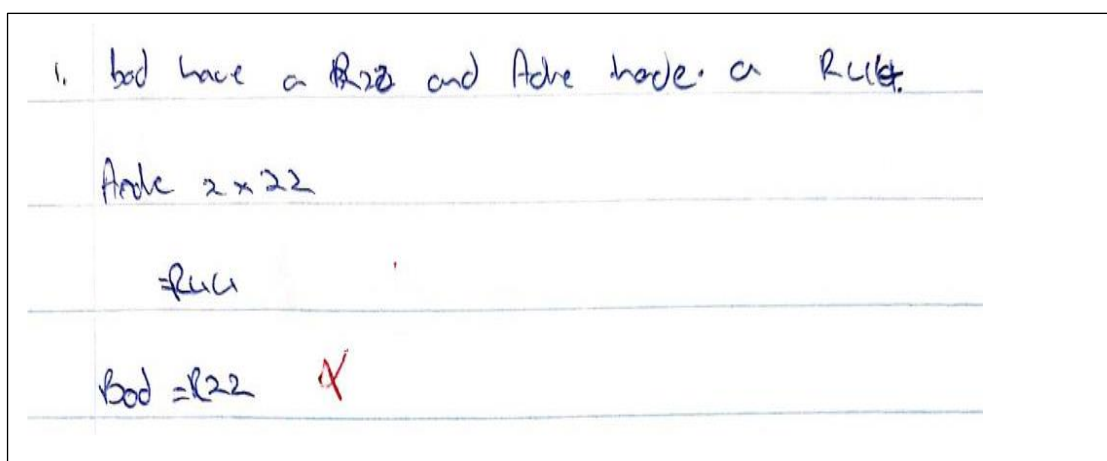 1. bod have a R22 and Ade hade. a R44.
Ande 2 x 22
=R44
Bod =R22